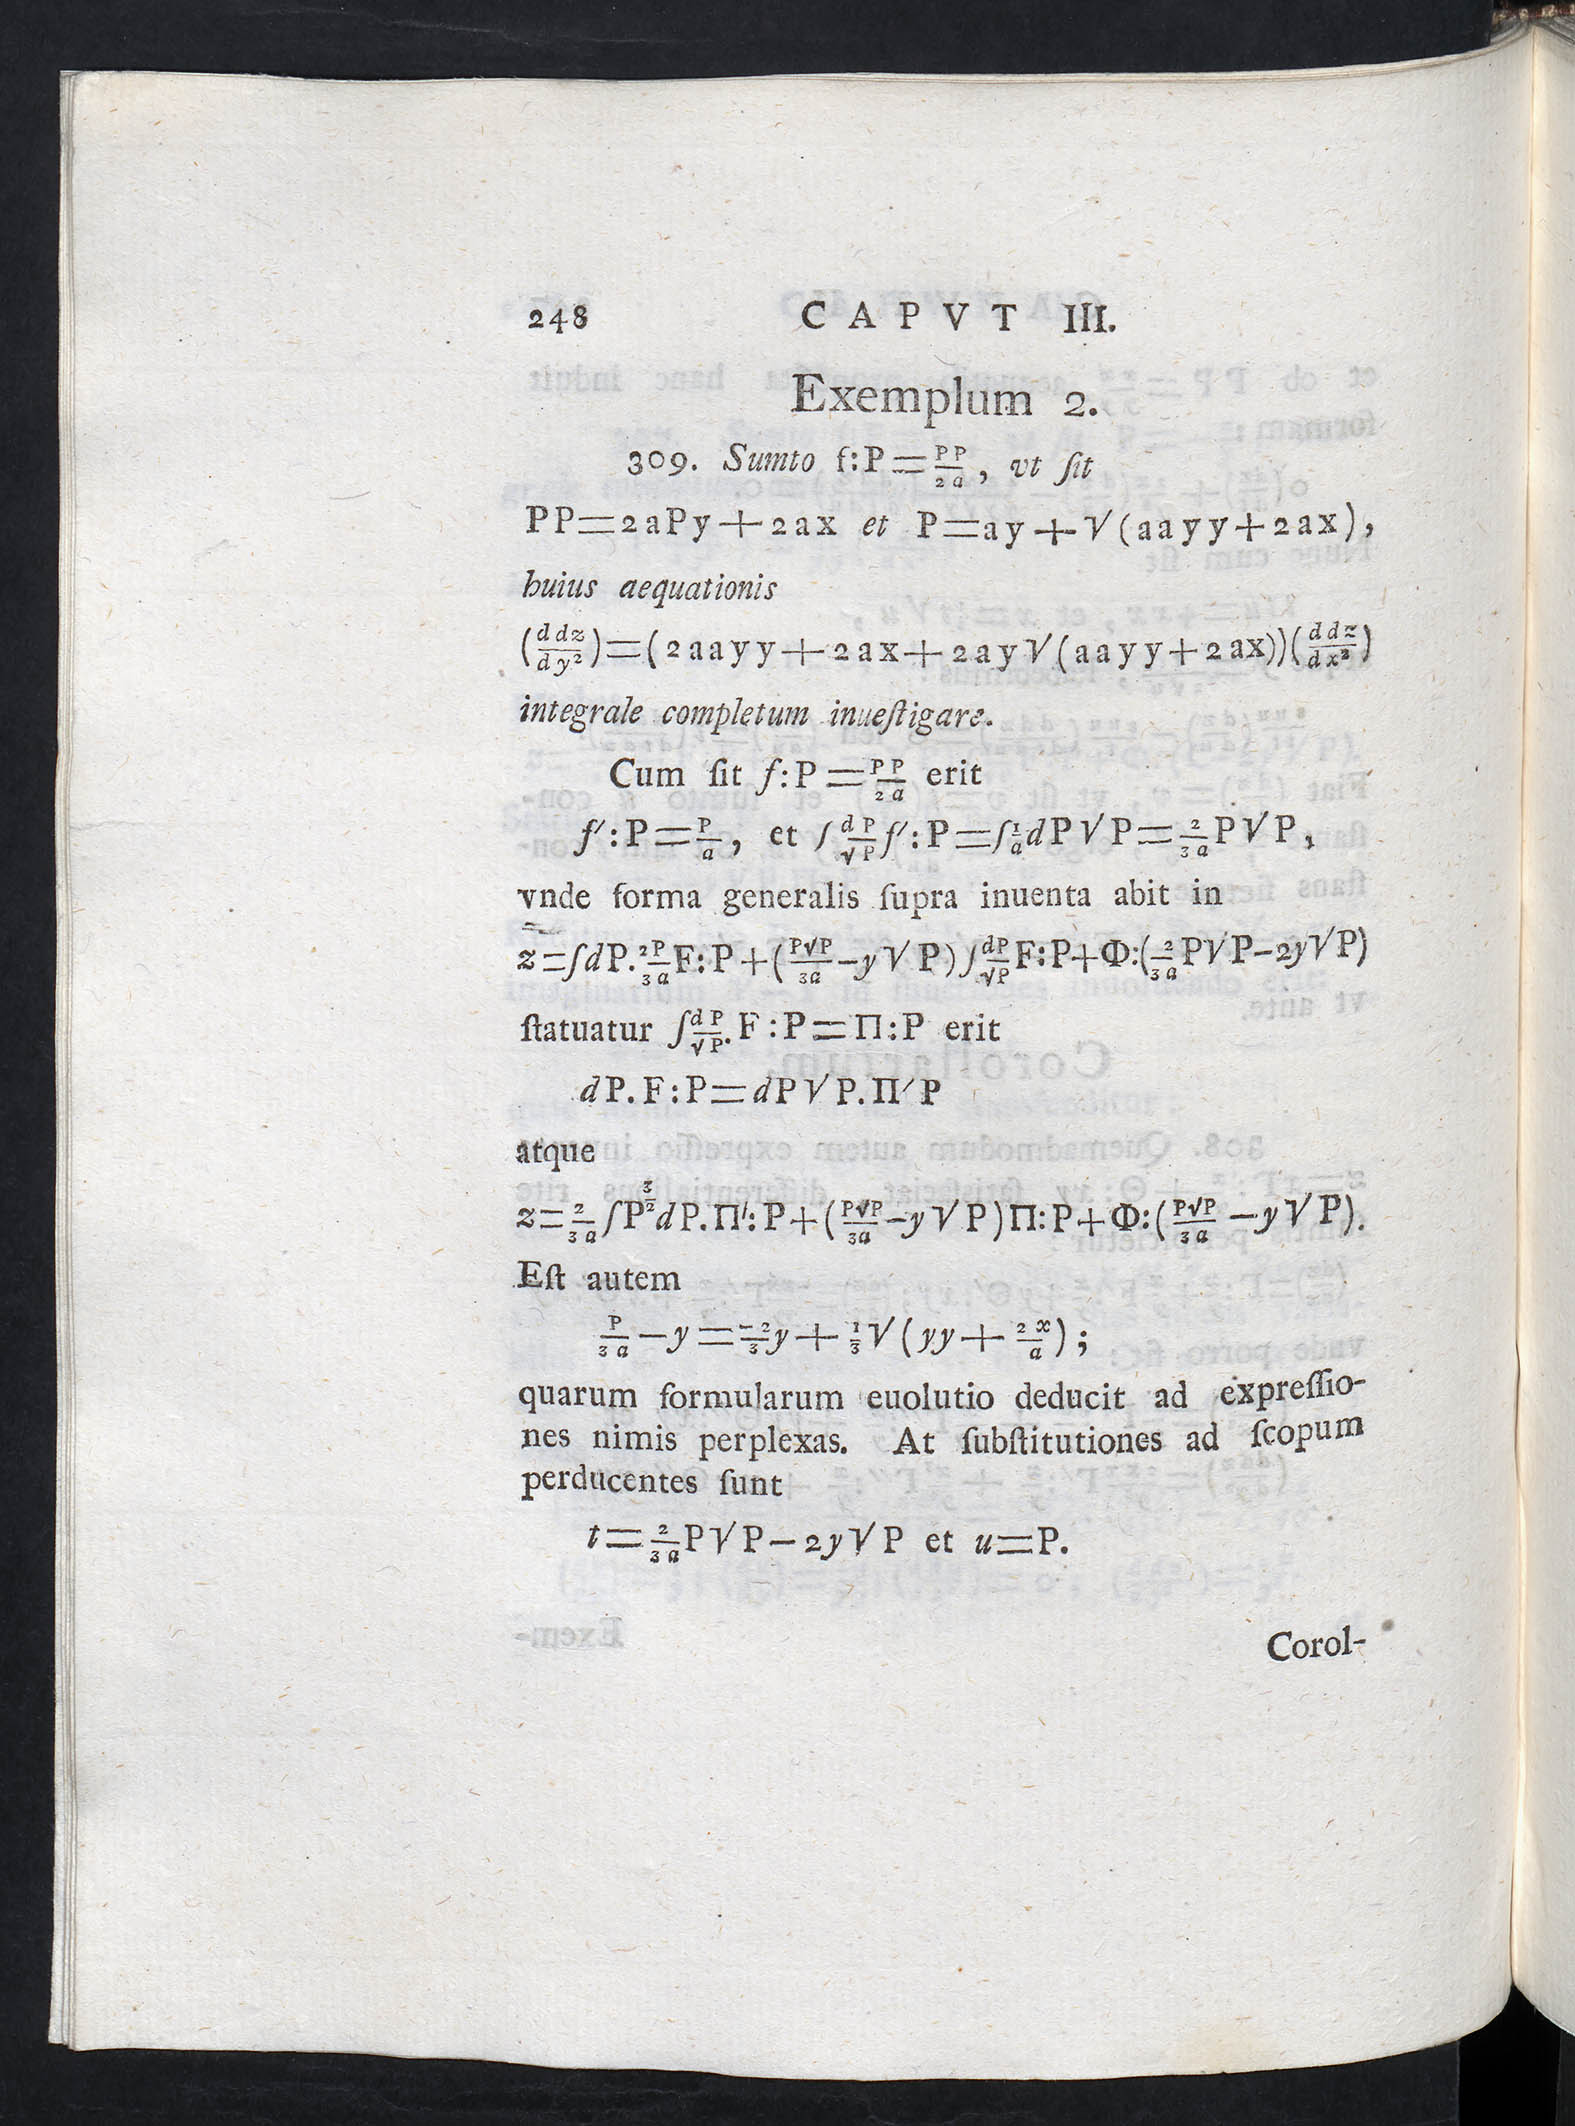 248 CAPVT III.
Exemplum 2.
309. Sumto f:P = \frac{PP}{2a}, vt ſit
PP=2aPy+2ax et P=ay+√(aayy+2ax),
huius aequationis
(\frac{ddz}{dy^2})=(2aayy+2ax+2ay√(aayy+2ax))(\frac{ddz}{dx^2})
integrale completum inueſtigare.
Cum ſit f:P=\frac{PP}{2a} erit
f′:P=\frac{P}{a}, et ∫\frac{dP}{√P}f′:P=∫\frac{1}{a}dP√P=\frac{2}{3a}P√P,
vnde forma generalis ſupra inuenta abit in
z=∫dP.\frac{2P}{3a}F:P+(\frac{P√P}{3a}-y√P)∫\frac{dP}{√P}F:P+Φ:(\frac{2}{3a}P√P-2y√P)
ſtatuatur ∫\frac{dP}{√P}.F:P=Π:P erit
dP.F:P=dP√P.Π′P
atque
z=\frac{2}{3a}∫P^{\frac{3}{2}}dP.Π′:P+(\frac{P√P}{3a}-y√P)Π:P+Φ:(\frac{P√P}{3a}-y√P).
Eſt autem
\frac{P}{3a}-y=\frac{-2}{3}y+\frac{1}{3}√(yy+\frac{2x}{a});
quarum formularum euolutio deducit ad expreſſio-
nes nimis perplexas. At ſubſtitutiones ad ſcopum
perducentes ſunt
t=\frac{2}{3a}P√P-2y√P et u=P.
Corol-